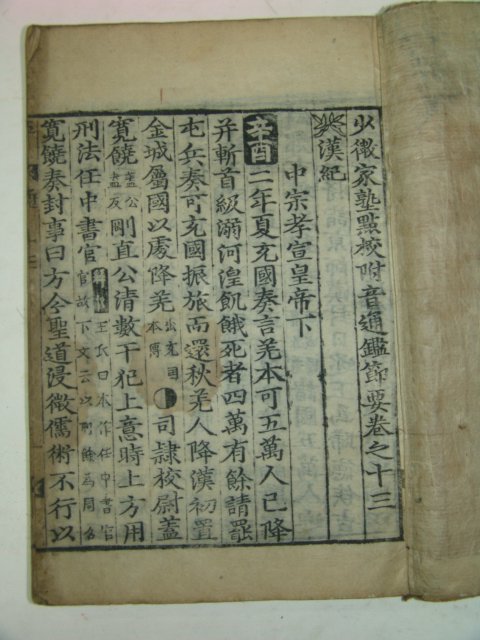 少微家塾點校附音通鑑節要卷之十三
漢紀
中宗孝宣皇帝下
辛酉二年夏充國奏言羌本可五萬人已降
并斬首級溺河湟飢餓死者四萬有餘請罷
屯兵奏可充國振旅而還秋羌人降漢初置
金城屬國以處降羌出充國本傳司隷校尉蓋
寬饒蓋公盍反剛直公清數干犯上意時上方用
刑法任中書官王氏曰本作任中書官官故下文云以刑餘爲周召
寬饒奏封事曰方今聖道浸微儒術不行以